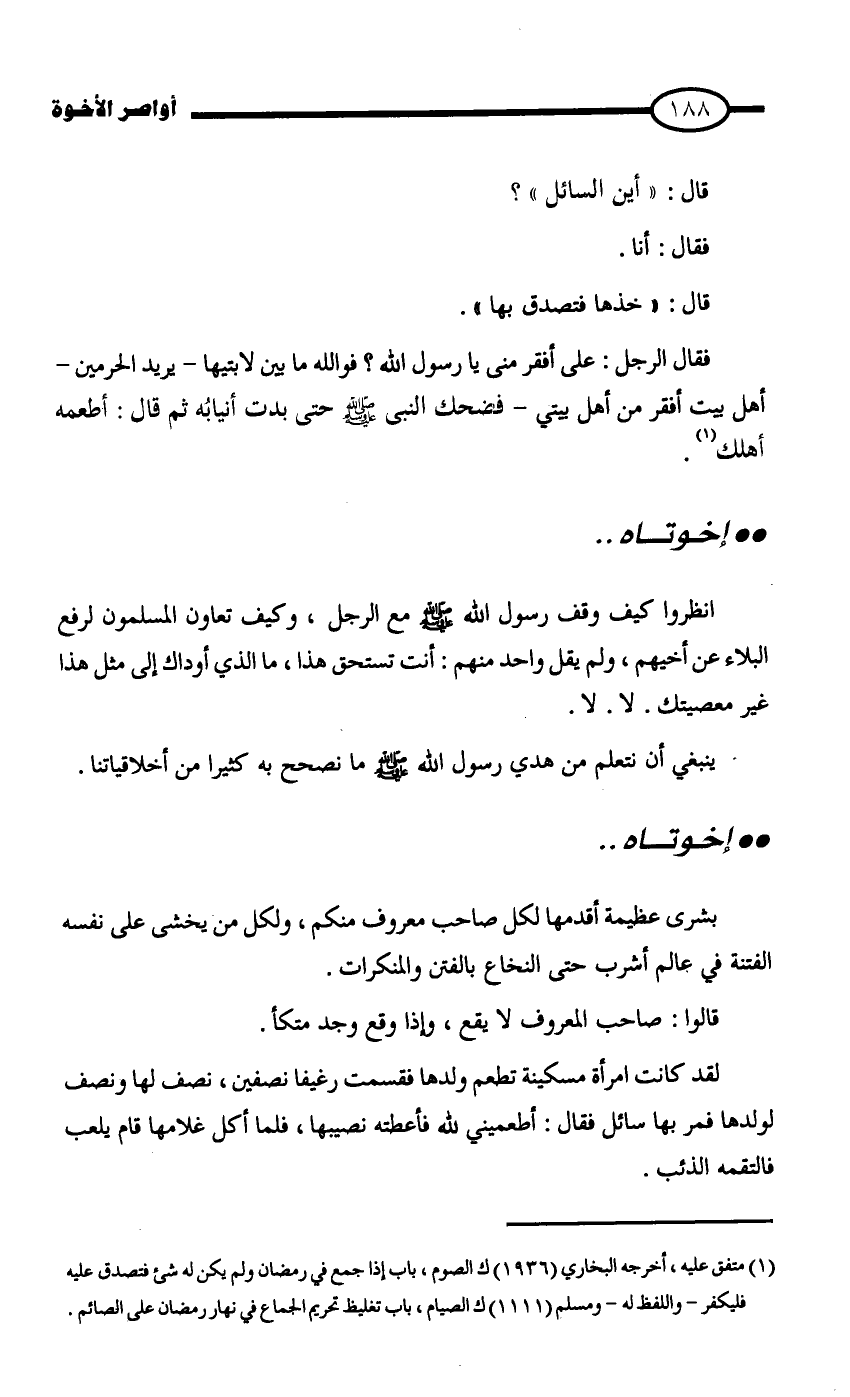 ١٨٨ أواصر الأخوة
قال : « أين السائل » ؟
فقال : أنا .
قال : « خذها فتصدق بها » .
فقال الرجل : على أفقر منى يا رسول الله ؟ فوالله ما بين لابتيها – يريد الحرمين –
أهل بيت أفقر من أهل بيتي – فضحك النبى ﷺ حتى بدت أنيابُه ثم قال : أطعمه
أهلك(١) .
●● إخـوتــاه ..
انظروا كيف وقف رسول الله ﷺ مع الرجل ، وكيف تعاون المسلمون لرفع
البلاء عن أخيهم ، ولم يقل واحد منهم : أنت تستحق هذا ، ما الذي أوداك إلى مثل هذا
غير معصيتك . لا . لا .
ينبغي أن نتعلم من هدي رسول الله ﷺ ما نصحح به كثيرا من أخلاقياتنا .
●● إخـوتــاه ..
بشرى عظيمة أقدمها لكل صاحب معروف منكم ، ولكل من يخشى على نفسه
الفتنة في عالم أشرب حتى النخاع بالفتن والمنكرات .
قالوا : صاحب المعروف لا يقع ، وإذا وقع وجد متكأ .
لقد كانت امرأة مسكينة تطعم ولدها فقسمت رغيفا نصفين ، نصف لها ونصف
لولدها فمر بها سائل فقال : أطعميني لله فأعطته نصيبها ، فلما أكل غلامها قام يلعب
فالتقمه الذئب .
(١) متفق عليه ، أخرجه البخاري (١٩٣٦) ك الصوم ، باب إذا جمع في رمضان ولم يكن له شئ فتصدق عليه
فليكفر – واللفظ له – ومسلم (١١١١) ك الصيام ، باب تغليظ تحريم الجماع في نهار رمضان على الصائم .